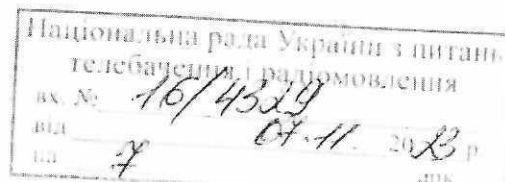 Національна рада України з питань
телебачення і радіомовлення
вх. № 16/4329
від 07.11. 2023 р
на 7 арк.